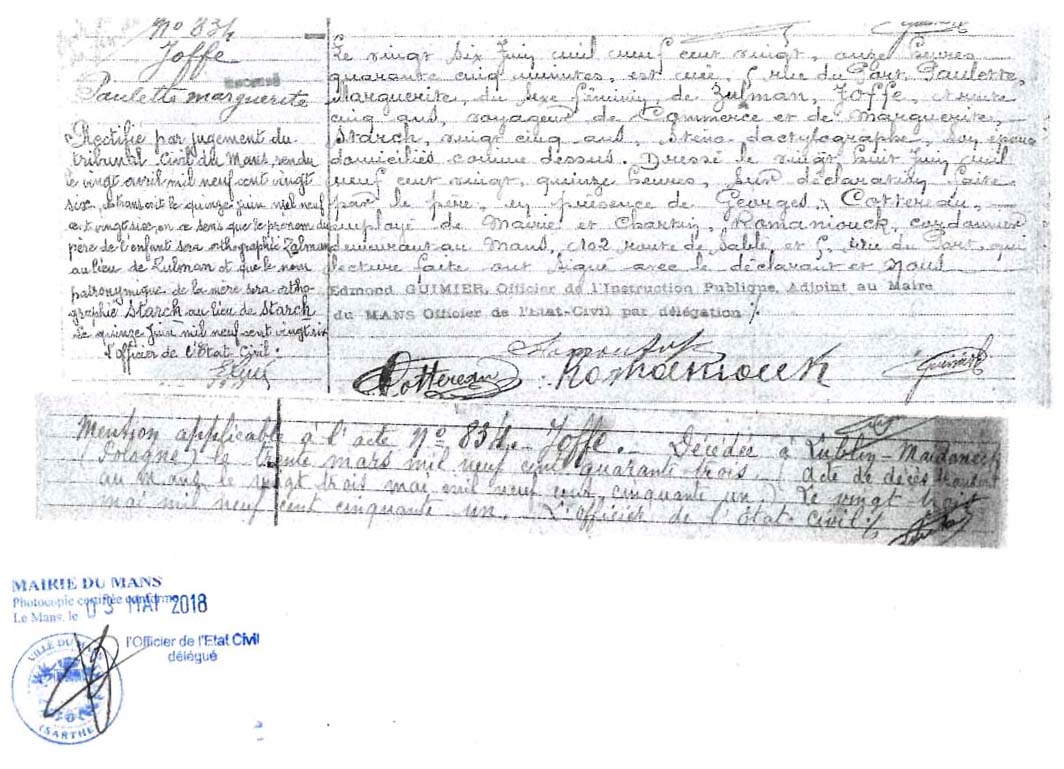 Nº 834
Joffe
Paulette Marguerite
Rectifié par jugement du
tribunal Civil du Mans, rendu
le vingt avril mil neuf cent vingt
six, transcrit le quinze juin mil neuf
cent vingt six, en ce sens que le prénom du
père de l'enfant sera orthographié Zalman
au lieu de Zulman et que le nom
patronymique de la mère sera ortho-
graphié Starck au lieu de Starch
Le quinze Juin mil neuf cent vingt six
l'officier de l'Etat Civil.
Le vingt six Juin mil neuf cent vingt, onze heures
quarante cinq minutes, est née, 5 rue du Port, Paulette,
Marguerite, du sexe féminin, de Zulman, Joffe, trente
cinq ans, voyageur de Commerce et de Marguerite,
Starch, vingt cinq ans, sténo-dactylographe, son épouse
domiciliés comme dessus. Dressé le vingt huit Juin mil
neuf cent vingt, quinze heures, sur déclaration faite
par le père, en présence de Georges, Cottereau,
employé de Mairie et Romaniouck, cordonnier
demeurant au Mans, 102 route de Sablé, et 5, rue du Port, qui
lecture faite ont signé avec le déclarant et Nous
Edmond GUIMIER, Officier de l'Instruction Publique, Adjoint au Maire
du MANS Officier de l'Etat-Civil par délégation
Cottereau Romaniouck Guimier
Mention applicable à l'acte Nº 834. Joffe. Décédée à Lublin-Maidaneck
(Pologne) le trente mars mil neuf cent quarante-trois (acte de décès transcrit
au Mans le vingt trois mai mil neuf cent cinquante un.) Le vingt huit
mai mil neuf cent cinquante un. L'officier de l'état civil
MAIRIE DU MANS
Photocopie certifiée conforme
Le Mans, le 03 MAI 2018
l'Officier de l'Etat Civil
délégué
VILLE DU MANS
(SARTHE)